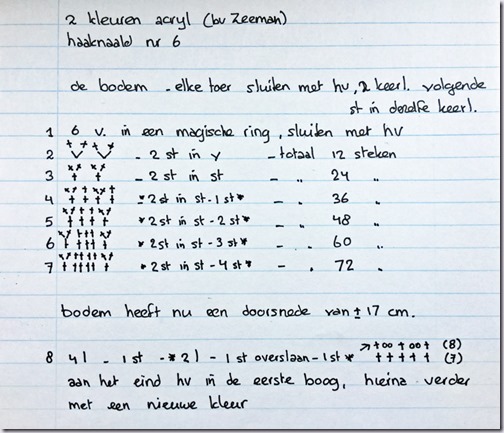 2 kleuren acryl (bv Zeeman)
haaknaald nr 6
de bodem - elke toer sluiten met hv, 2 keerl. volgende
st in dezelfde keerl.
1 6 v. in een magische ring, sluiten met hv
2 - 2 st in v - totaal 12 steken
3 - 2 st in st - " 24 "
4 - *2 st in st - 1 st* - " 36 "
5 *2 st in st - 2 st* - " 48 "
6 *2 st in st - 3 st* - " 60 "
7 *2 st in st - 4 st* - " 72 "
bodem heeft nu een doorsnede van ± 17 cm.
8 4l - 1 st - *2l - 1 st overslaan - 1 st* (8)
(7)
aan het eind hv in de eerste boog, hierna verder
met een nieuwe kleur